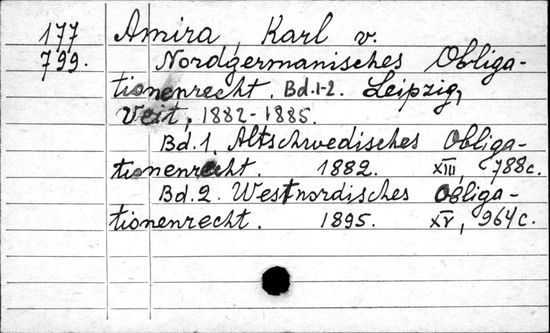 177 Amira, Karl v.
799. Nordgermanisches Obliga-
tionenrecht. Bd.1-2. Leipzig,
Veit, 1882-1885.
Bd.1. Altschwedisches Obliga-
tionenrecht. 1882. XIII, 788c.
Bd.2. Westnordisches Obliga-
tionenrecht. 1895. XV, 964c.